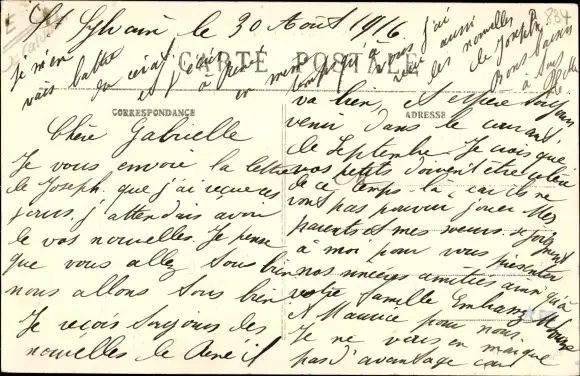 St Sylvain le 30 Août 1916
CARTE POSTALE
CORRESPONDANCE
ADRESSE
834
Chère Gabrielle
Je vous envoie la lettre
de Joseph que j'ai reçue ces
jours. j'attendais avoir
de vos nouvelles. Je pense
que vous allez tous bien
nous allons tous bien
Je reçois toujours des
nouvelles de René il
va bien, et espère toujours
venir dans le courant
de Septembre. Je crois que
vos petits doivent être
de ce temps là car ils ne
vont pas pouvoir jouer. Mes
parents et mes soeurs se joignent
à moi pour vous présenter
nos sincères amitiés ainsi qu'à
votre famille Embrassez
Maurice pour nous
Je ne vous en marque
pas d'avantage car
Je m'en
vais battre
du
et
à René
en
temps qu'à
vous j'ai
aussi
des nouvelles
de Joseph
Bons baisers
à tous